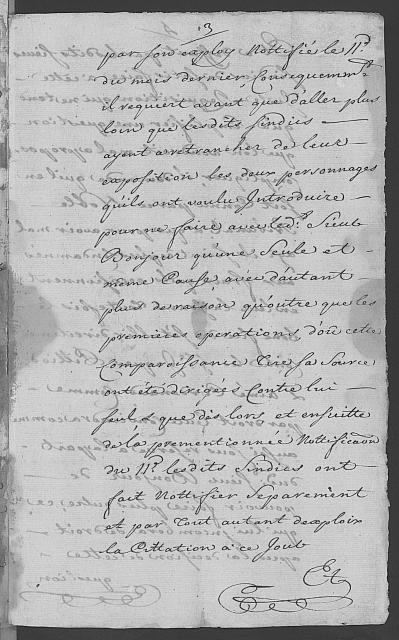 3
par son exploy Nottifié le 11.e
du mois dernier, Consequemmt
il requiert avant que d'aller plus
loin que lesdits Sindics
ayent a retrancher de leur
exposition les deux personnages
qu'ils ont voulu Introduire
pour ne faire avec led.t Sieur
Bonjour qu'une Seule et
même Cause avec d'autant
plus de raison qu'outre que les
premieres operations, d'où cette
Comparoissance Tire sa Source
ont été dirigés Contre lui
seul, c'est que dès lors et ensuitte
de la prementionnée Nottification
du 11.e lesdits Sindics ont
fait Nottifier Separément
et par Tout autant d'exploix
la Cittation a ce Jour
Et